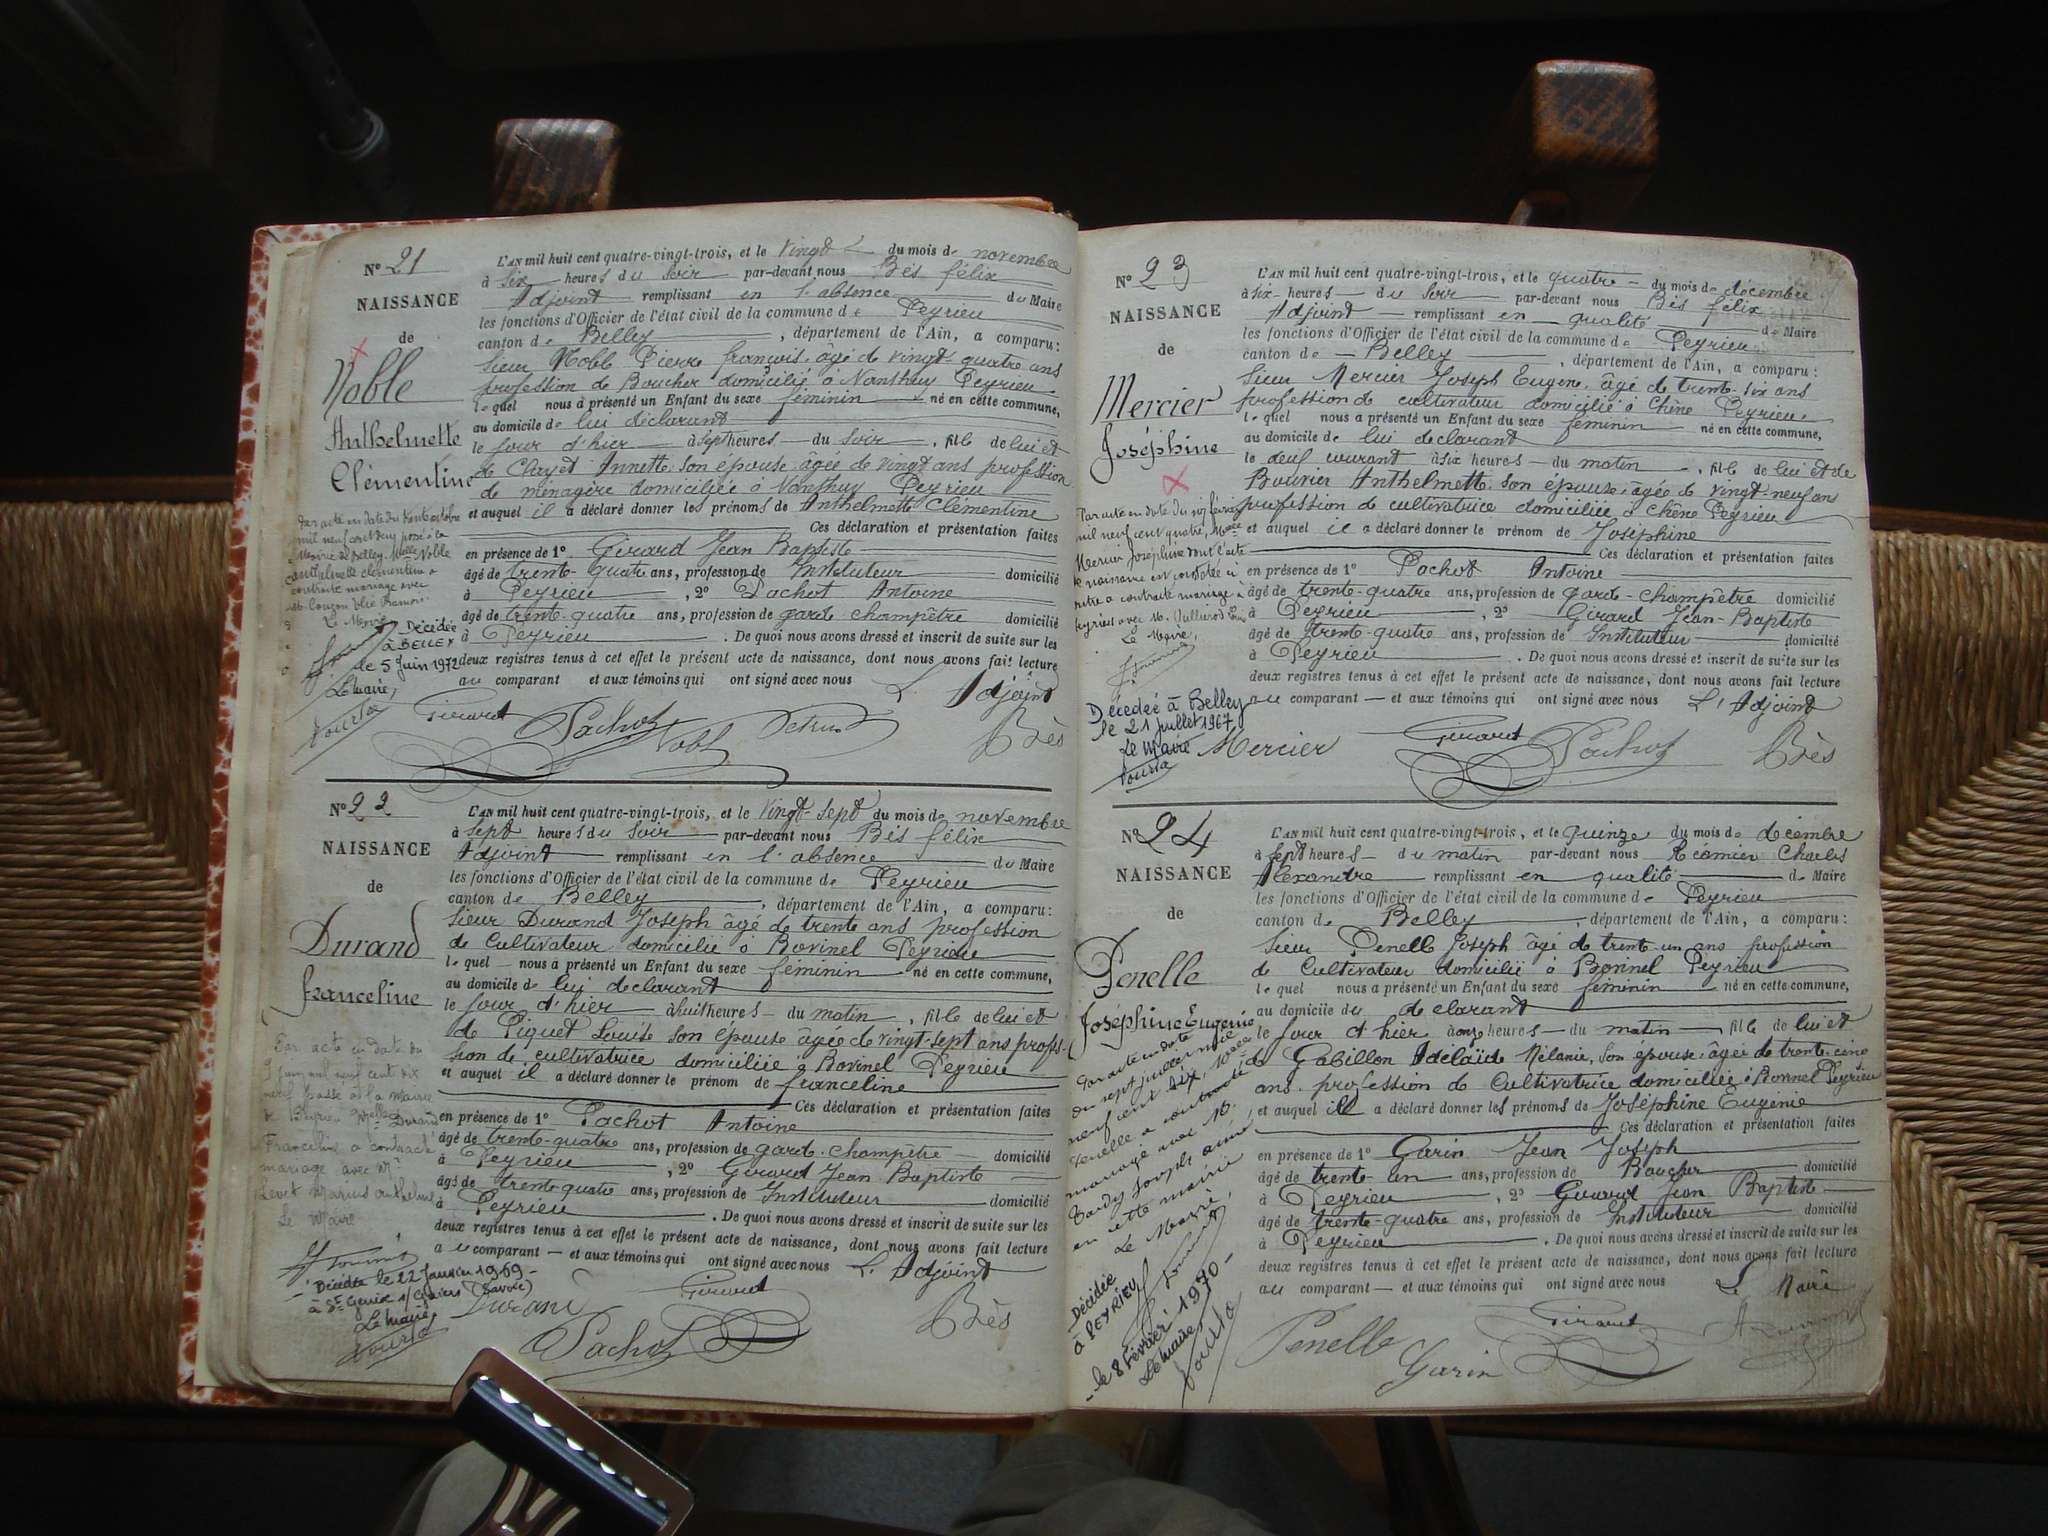 Nº 21
NAISSANCE
de
Noble
Anthelmette
Clémentine
L'AN mil huit cent quatre-vingt-trois, et le vingt du mois de novembre
à six heures du soir par-devant nous Bès félix
Adjoint remplissant en l'absence du Maire
les fonctions d'Officier de l'état civil de la commune de Peyrieu
canton de Belley, département de l'Ain, a comparu:
Sieur Noble Pierre françois, âgé de vingt quatre ans
profession de Boucher domicilié à Nanthuy Peyrieu
lequel nous a présenté un Enfant du sexe féminin né en cette commune,
au domicile de lui déclarant
le jour d'hier à sept heures du soir, fille de lui et
de Clayet Annette son épouse âgée de vingt ans profession
de ménagère domiciliée à Nanthuy Peyrieu
et auquel il a déclaré donner les prénoms de Anthelmette Clémentine
Ces déclaration et présentation faites
en présence de 1º Girard Jean Baptiste
âgé de trente-quatre ans, profession de Instituteur domicilié
à Peyrieu, 2º Pachot Antoine
âgé de trente-quatre ans, profession de garde champêtre domicilié
à Peyrieu. De quoi nous avons dressé et inscrit de suite sur les
deux registres tenus à cet effet le présent acte de naissance, dont nous avons fait lecture
au comparant et aux témoins qui ont signé avec nous L'Adjoint
Girard Pachot Noble Bès
Par acte en date du octobre
mil neuf cent passé à la
Mairie de Belley, Melle Noble
Anthelmette Clémentine a
contracté mariage avec
Le Maire
Décédée
à BELLEY
le 5 Juin 1972
Le Maire,
Nº 22
NAISSANCE
de
Durand
franceline
L'AN mil huit cent quatre-vingt-trois, et le vingt-sept du mois de novembre
à sept heures du soir par-devant nous Bès félix
Adjoint remplissant en l'absence du Maire
les fonctions d'Officier de l'état civil de la commune de Peyrieu
canton de Belley, département de l'Ain, a comparu:
Sieur Durand Joseph âgé de trente ans profession
de Cultivateur domicilié à Bovinel Peyrieu
lequel nous a présenté un Enfant du sexe féminin né en cette commune,
au domicile de lui déclarant
le jour d'hier à huit heures du matin, fille de lui et
de Piquet Louise son épouse âgée de vingt-sept ans profes-
sion de cultivatrice domiciliée à Bovinel Peyrieu
et auquel il a déclaré donner le prénom de franceline
Ces déclaration et présentation faites
en présence de 1º Pachot Antoine
âgé de trente-quatre ans, profession de garde-champêtre domicilié
à Peyrieu, 2º Girard Jean Baptiste
âgé de trente quatre ans, profession de Instituteur domicilié
à Peyrieu. De quoi nous avons dressé et inscrit de suite sur les
deux registres tenus à cet effet le présent acte de naissance, dont nous avons fait lecture
au comparant et aux témoins qui ont signé avec nous L'Adjoint
Durand Girard Pachot Bès
Par acte en date du
juin mil neuf cent dix
neuf passé à la mairie
de Peyrieu Melle Durand
Franceline a contracté
mariage avec Mr
Levet Marius Anthelme
Le Maire
Décédée le 22 Janvier 1969
à St Genix s/Guiers (Savoie)
Le Maire,
Nº 23
NAISSANCE
de
Mercier
Joséphine
L'AN mil huit cent quatre-vingt-trois, et le quatre du mois de décembre
à six heures du soir par-devant nous Bès félix
Adjoint remplissant en qualité de Maire
les fonctions d'Officier de l'état civil de la commune de Peyrieu
canton de Belley, département de l'Ain, a comparu:
Sieur Mercier Joseph Eugène, âgé de trente-six ans
profession de cultivateur domicilié à Chêne Peyrieu
lequel nous a présenté un Enfant du sexe féminin né en cette commune,
au domicile de lui déclarant
le deux courant à six heures du matin, fille de lui et de
Bouvier Anthelmette son épouse âgée de vingt-neuf ans
profession de cultivatrice domiciliée à Chêne Peyrieu
et auquel il a déclaré donner le prénom de Joséphine
Ces déclaration et présentation faites
en présence de 1º Pachot Antoine
âgé de trente-quatre ans, profession de garde-champêtre domicilié
à Peyrieu, 2º Girard Jean-Baptiste
âgé de trente-quatre ans, profession de Instituteur domicilié
à Peyrieu. De quoi nous avons dressé et inscrit de suite sur les
deux registres tenus à cet effet le présent acte de naissance, dont nous avons fait lecture
au comparant et aux témoins qui ont signé avec nous L'Adjoint
Mercier Girard Pachot Bès
Par acte en date du février
mil neuf cent quatre, Melle
Mercier Joséphine dont l'acte
de naissance est constaté ci
contre a contracté mariage à
Peyrieu avec M.
Le Maire,
Décédée à Belley
le 21 juillet 1967
Le Maire
Nº 24
NAISSANCE
de
Penelle
Joséphine Eugénie
L'AN mil huit cent quatre-vingt-trois, et le Quinze du mois de décembre
à sept heures du matin par-devant nous Récamier Charles
Alexandre remplissant en qualité de Maire
les fonctions d'Officier de l'état civil de la commune de Peyrieu
canton de Belley, département de l'Ain, a comparu:
Sieur Penelle Joseph âgé de trente-un ans profession
de Cultivateur domicilié à Bovinel Peyrieu
lequel nous a présenté un Enfant du sexe féminin né en cette commune,
au domicile du déclarant
le jour d'hier à onze heures du matin, fille de lui et
de Gabillon Adélaïde Mélanie, son épouse, âgée de trente-cinq
ans profession de Cultivatrice domiciliée à Bovinel Peyrieu
et auquel il a déclaré donner les prénoms de Joséphine Eugénie
Ces déclaration et présentation faites
en présence de 1º Garin Jean Joseph
âgé de trente-un ans, profession de Boucher domicilié
à Peyrieu, 2º Girard Jean Baptiste
âgé de trente-quatre ans, profession de Instituteur domicilié
à Peyrieu. De quoi nous avons dressé et inscrit de suite sur les
deux registres tenus à cet effet le présent acte de naissance, dont nous avons fait lecture
au comparant et aux témoins qui ont signé avec nous Le Maire
Penelle Garin Girard
Par acte en date
du sept juillet mil
neuf cent six, Melle
Penelle a contracté
mariage avec M.
Tardy Joseph aimé,
en cette mairie
Le Maire,
Décédée
à PEYRIEU
le 8 Février 1970
Le Maire,